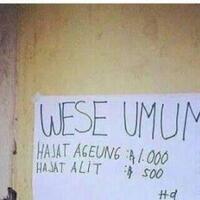 WESE UMUM
HAJAT AGEUNG : Rp 1.000
HAJAT ALIT : Rp 500